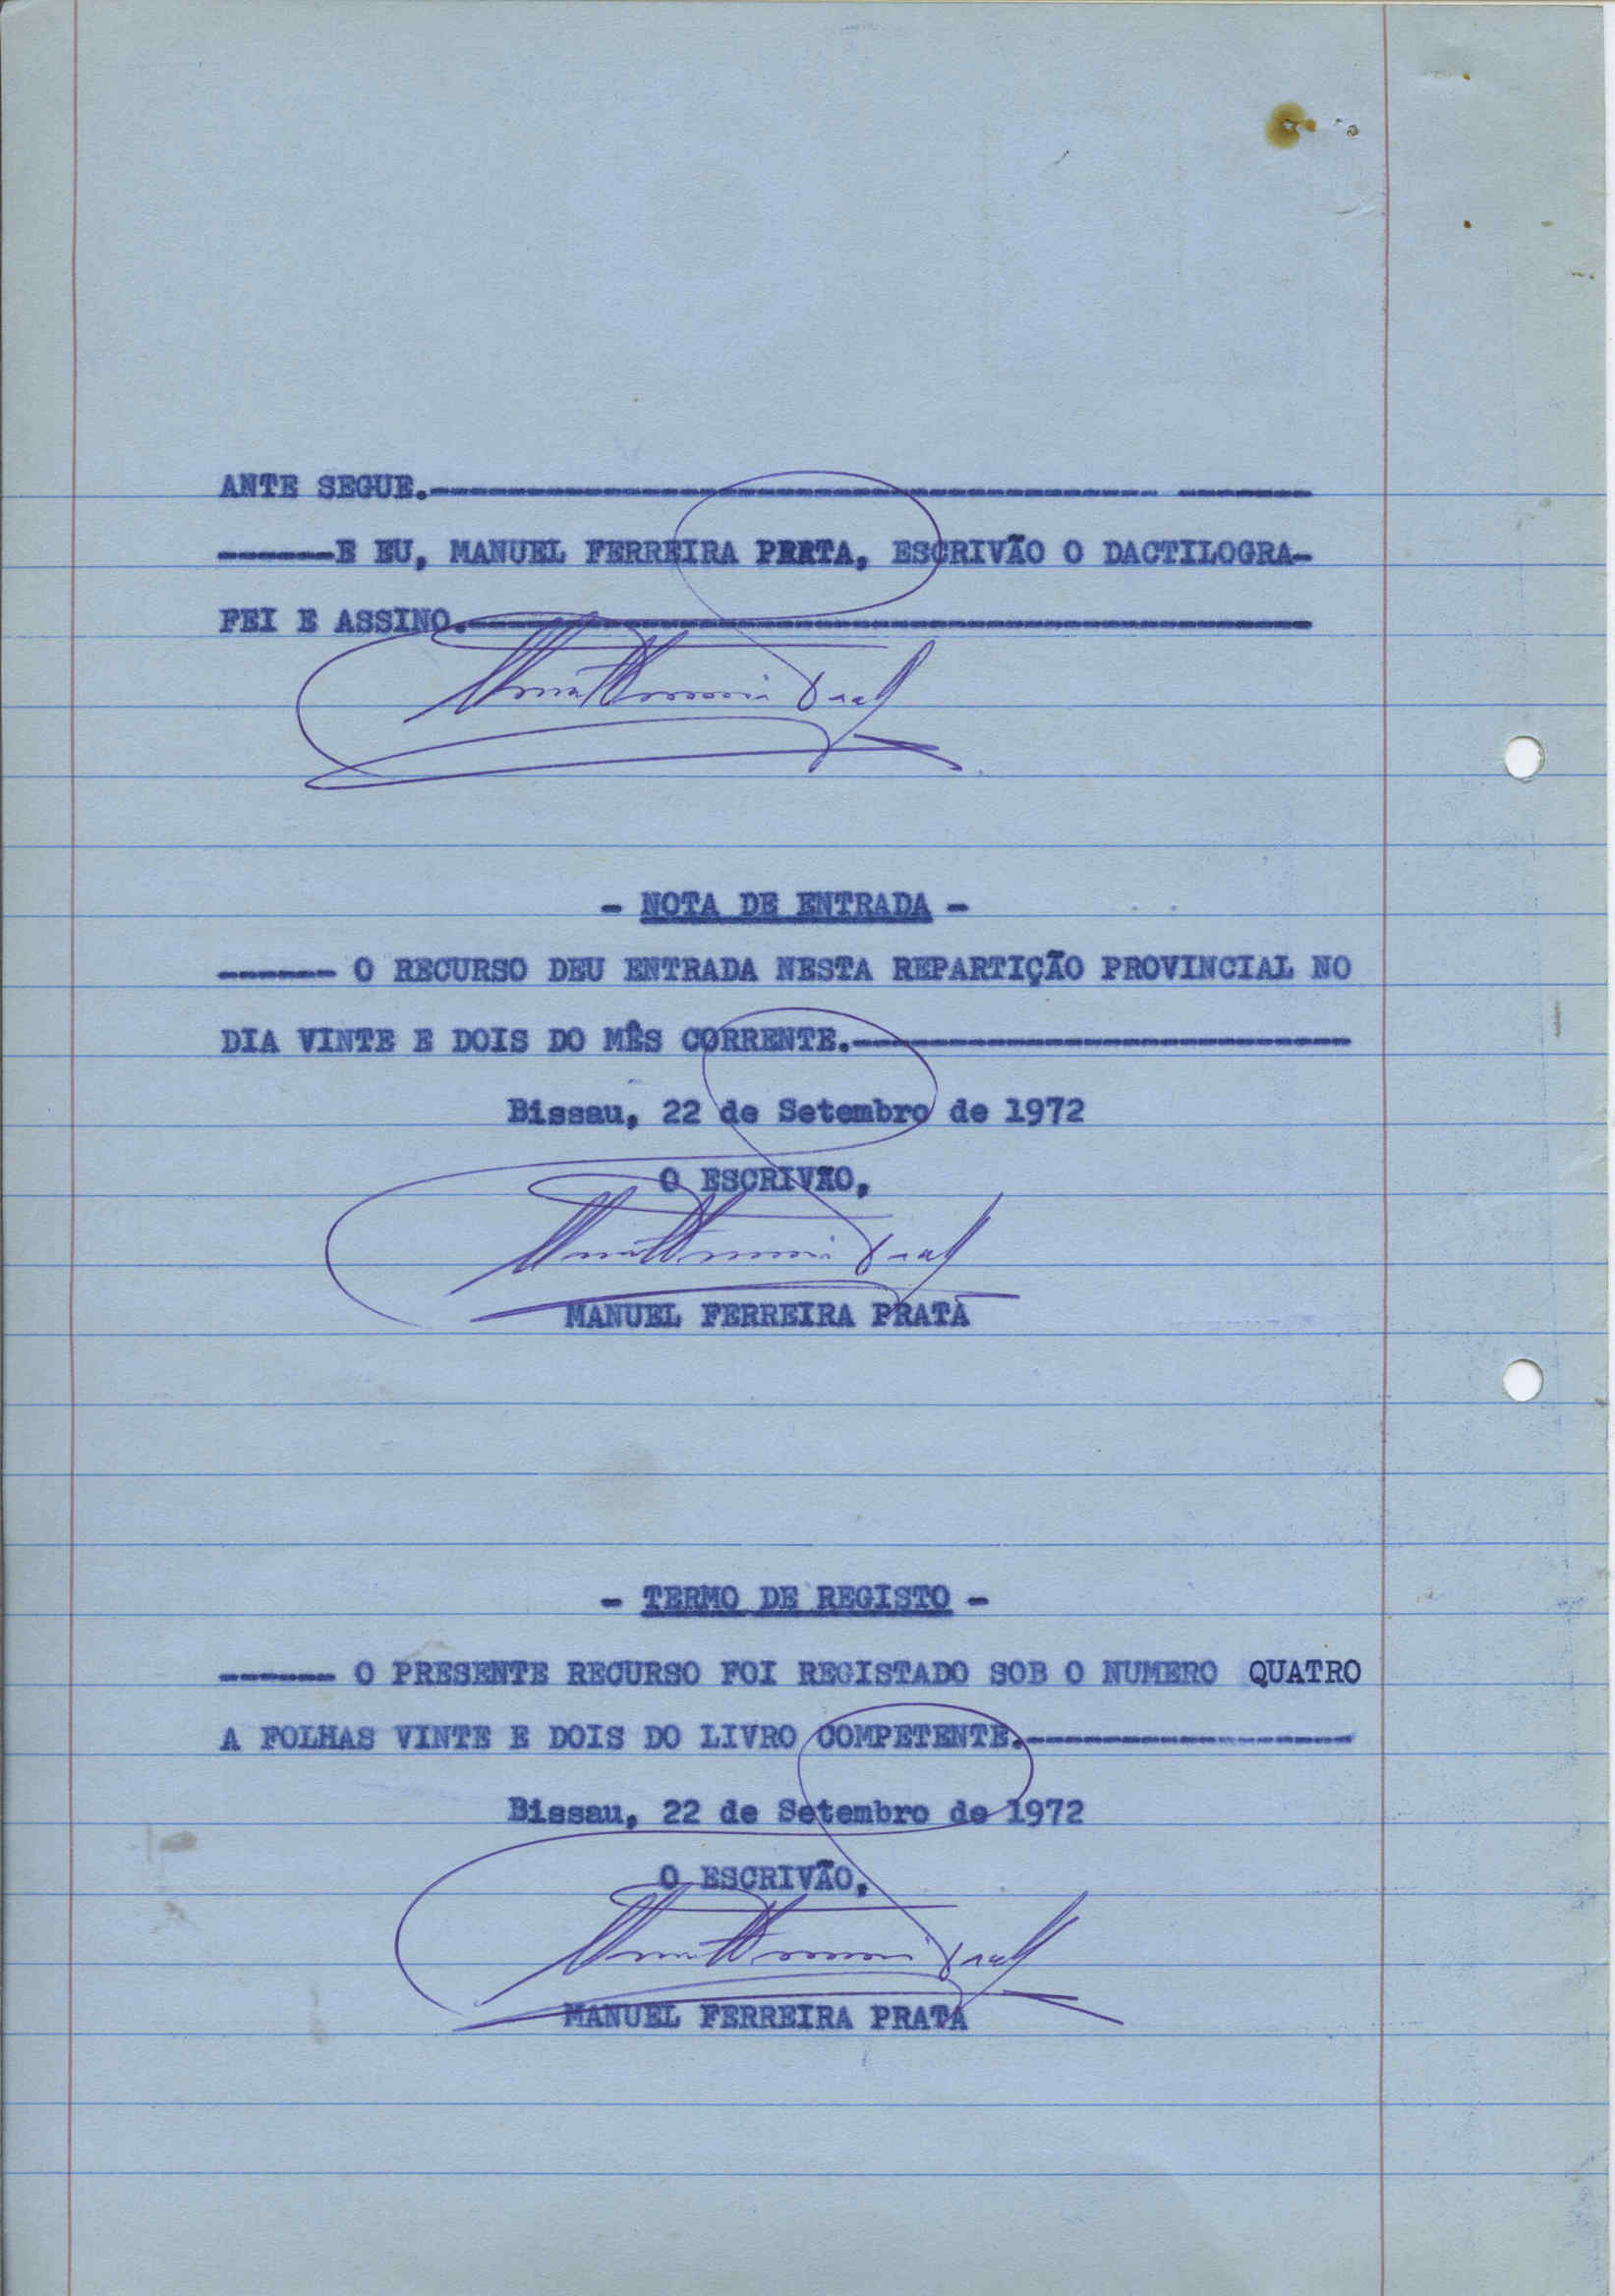 ANTE SEGUE.--------------------------------------------- -------
------E EU, MANUEL FERREIRA PRATA, ESCRIVÃO O DACTILOGRA-
FEI E ASSINO.--------------------------------------------
- NOTA DE ENTRADA -
------ O RECURSO DEU ENTRADA NESTA REPARTIÇÃO PROVINCIAL NO
DIA VINTE E DOIS DO MÊS CORRENTE.--------------------------
Bissau, 22 de Setembro de 1972
O ESCRIVÃO,
MANUEL FERREIRA PRATA
- TERMO DE REGISTO -
------ O PRESENTE RECURSO FOI REGISTADO SOB O NUMERO QUATRO
A FOLHAS VINTE E DOIS DO LIVRO COMPETENTE.-----------------
Bissau, 22 de Setembro de 1972
O ESCRIVÃO,
MANUEL FERREIRA PRATA